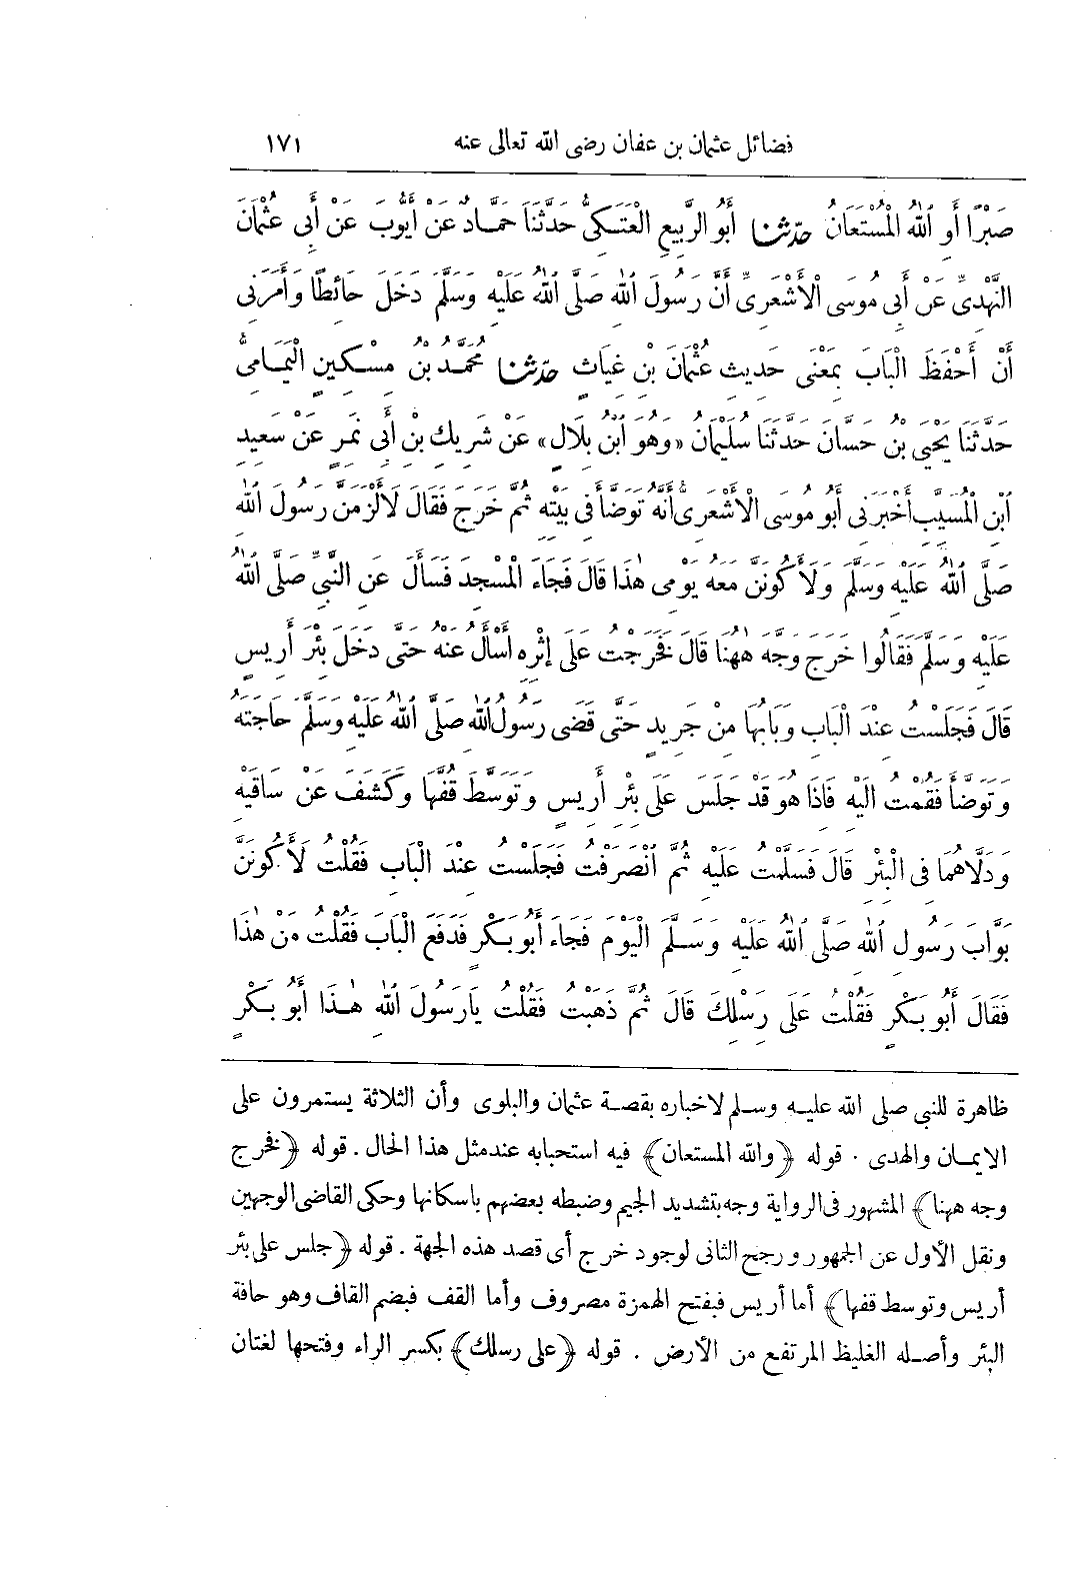 فضائل عثمان بن عفان رضى الله تعالى عنه ١٧١
صَبْرًا أَوِ اللهُ الْمُسْتَعَانُ حدّثنا أَبُو الرَّبِيعِ الْعَتَكِىُّ حَدَّثَنَا حَمَّادٌ عَنْ أَيُّوبَ عَنْ أَبِى عُثْمَانَ
النَّهْدِىِّ عَنْ أَبِى مُوسَى الْأَشْعَرِىِّ أَنَّ رَسُولَ اللهِ صَلَّى اللهُ عَلَيْهِ وَسَلَّمَ دَخَلَ حَائِطًا وَأَمَرَنِى
أَنْ أَحْفَظَ الْبَابَ بِمَعْنَى حَدِيثِ عُثْمَانَ بْنِ غِيَاثٍ حدّثنا مُحَمَّدُ بْنُ مِسْكِينٍ الْيَمَامِىُّ
حَدَّثَنَا يَحْيَى بْنُ حَسَّانَ حَدَّثَنَا سُلَيْمَانُ «وَهُوَ ابْنُ بِلَالٍ» عَنْ شَرِيكِ بْنِ أَبِى نَمِرٍ عَنْ سَعِيدِ
ابْنِ الْمُسَيَّبِ أَخْبَرَنِى أَبُو مُوسَى الْأَشْعَرِىُّ أَنَّهُ تَوَضَّأَ فِى بَيْتِهِ ثُمَّ خَرَجَ فَقَالَ لَأَلْزَمَنَّ رَسُولَ اللهِ
صَلَّى اللهُ عَلَيْهِ وَسَلَّمَ وَلَأَكُونَنَّ مَعَهُ يَوْمِى هٰذَا قَالَ فَجَاءَ الْمَسْجِدَ فَسَأَلَ عَنِ النَّبِىِّ صَلَّى اللهُ
عَلَيْهِ وَسَلَّمَ فَقَالُوا خَرَجَ وَجَّهَ هٰهُنَا قَالَ فَخَرَجْتُ عَلَى إِثْرِهِ أَسْأَلُ عَنْهُ حَتَّى دَخَلَ بِئْرَ أَرِيسٍ
قَالَ فَجَلَسْتُ عِنْدَ الْبَابِ وَبَابُهَا مِنْ جَرِيدٍ حَتَّى قَضَى رَسُولُ اللهِ صَلَّى اللهُ عَلَيْهِ وَسَلَّمَ حَاجَتَهُ
وَتَوَضَّأَ فَقُمْتُ إِلَيْهِ فَإِذَا هُوَ قَدْ جَلَسَ عَلَى بِئْرِ أَرِيسٍ وَتَوَسَّطَ قُفَّهَا وَكَشَفَ عَنْ سَاقَيْهِ
وَدَلَّاهُمَا فِى الْبِئْرِ قَالَ فَسَلَّمْتُ عَلَيْهِ ثُمَّ انْصَرَفْتُ فَجَلَسْتُ عِنْدَ الْبَابِ فَقُلْتُ لَأَكُونَنَّ
بَوَّابَ رَسُولِ اللهِ صَلَّى اللهُ عَلَيْهِ وَسَلَّمَ الْيَوْمَ فَجَاءَ أَبُو بَكْرٍ فَدَفَعَ الْبَابَ فَقُلْتُ مَنْ هٰذَا
فَقَالَ أَبُو بَكْرٍ فَقُلْتُ عَلَى رِسْلِكَ قَالَ ثُمَّ ذَهَبْتُ فَقُلْتُ يَا رَسُولَ اللهِ هٰذَا أَبُو بَكْرٍ
ظاهرة للنبى صلى الله عليه وسلم لاخباره بقصة عثمان والبلوى وأن الثلاثة يستمرون على
الايمان والهدى . قوله ﴿والله المستعان﴾ فيه استحبابه عند مثل هذا الحال . قوله ﴿فخرج
وجه ههنا﴾ المشهور فى الرواية وجه بتشديد الجيم وضبطه بعضهم باسكانها وحكى القاضى الوجهين
ونقل الأول عن الجمهور ورجح الثانى لوجود خرج أى قصد هذه الجهة . قوله ﴿جلس على بئر
أريس وتوسط قفها﴾ أما أريس فبفتح الهمزة مصروف وأما القف فبضم القاف وهو حافة
البئر وأصله الغليظ المرتفع من الأرض . قوله ﴿على رسلك﴾ بكسر الراء وفتحها لغتان